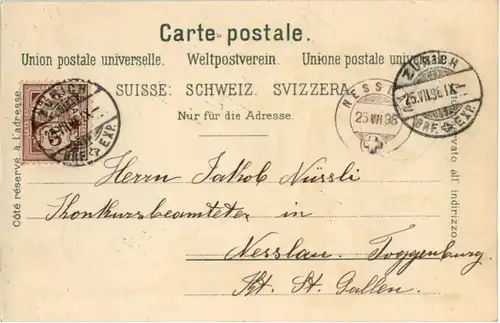 Carte postale.
Union postale universelle. Weltpostverein. Unione postale universale.
SUISSE. SCHWEIZ. SVIZZERA.
Nur für die Adresse.
Côté réservé à l'adresse.
ZÜRICH
25.VII.98.IX-
BRF. EXP.
NESSL
25 VII 98
ZÜRICH
25.VII.98.IX-
BRF. EXP.
vato al indirizzo
Herrn Jakob Nüssli
Konkursbeamteter in
Nesslau. Toggenburg.
Kt. St. Gallen.